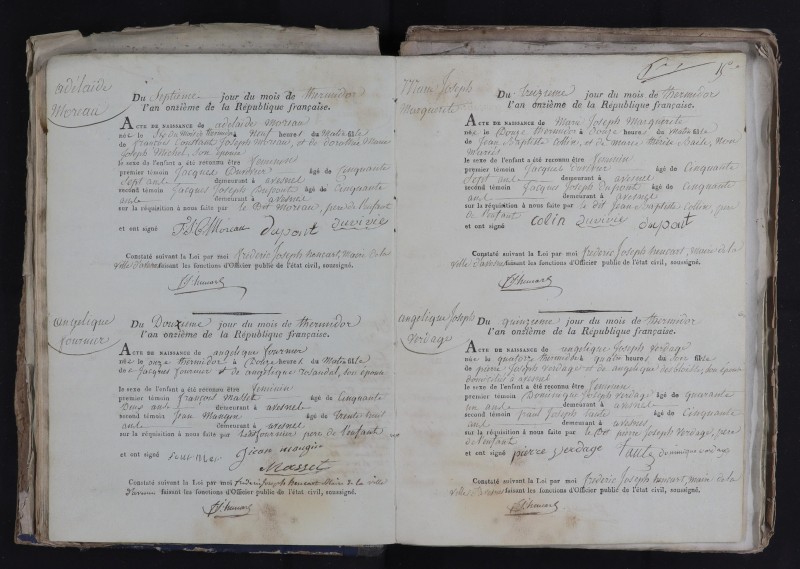 adélaide
Moreau
Du Septième jour du mois de thermidor
l'an onzième de la République française.
ACTE DE NAISSANCE de adelaide moreau
née le Six du mois de thermidor neuf heures du Matin fille
de françois Constant Joseph moreau, et de
Joseph son épouse
le sexe de l'enfant a été reconnu être feminin
premier témoin Jacques âgé de Cinquante
Sept ans demeurant à avesnes
second témoin Jacques Joseph Dupont âgé de Cinquante
ans demeurant à avesnes
sur la réquisition à nous faite par le Dit Moreau, pere de l'enfant
et ont signé Moreau dupont duvivié
Constaté suivant la Loi par moi frederic Joseph hencart, Maire de la
ville d'avesnes faisant les fonctions d'Officier public de l'état civil, soussigné.
angelique
fournier
Du Douzeme jour du mois de thermidor
l'an onzième de la République française.
ACTE DE NAISSANCE de angelique fournier
née le onze thermidor à heures du Matin fille
de Jacques fournier et de angelique son épouse
le sexe de l'enfant a été reconnu être feminin
premier témoin françois Masset âgé de Cinquante
ans demeurant à avesnes
second témoin Jean âgé de trente huit
ans demeurant à avesnes
sur la réquisition à nous faite par fournier pere de l'enfant
et ont signé jean maugin
Masset
Constaté suivant la Loi par moi frederic Joseph hencart Maire de la ville
d'avesnes faisant les fonctions d'Officier public de l'état civil, soussigné.
Marie Joseph
Marguerite
Du treizeme jour du mois de thermidor
l'an onzième de la République française.
ACTE DE NAISSANCE de Marie Joseph Marguerite
née le Douze thermidor à heures du Matin fille
de Jean Baptiste Collin, et de marie thérèse Non
Mariés
le sexe de l'enfant a été reconnu être feminin
premier témoin Jacques âgé de Cinquante
Sept ans demeurant à avesnes
second témoin Jacques Joseph Dupont âgé de Cinquante
ans demeurant à avesnes
sur la réquisition à nous faite par le dit Jean Baptiste Colin, pere
de l'enfant
et ont signé colin duvivié dupont
Constaté suivant la Loi par moi frederic Joseph hencart, Maire de la
ville d'avesnes faisant les fonctions d'Officier public de l'état civil, soussigné.
angelique Joseph
Verdage
Du quinzeme jour du mois de thermidor
l'an onzième de la République française.
ACTE DE NAISSANCE de angelique Joseph Verdage
née le quatorze thermidor à quatre heures du Soir fille
de pierre Joseph Verdage et de angelique son épouse
domiciliés à avesnes
le sexe de l'enfant a été reconnu être feminin
premier témoin Dominique Joseph Verdage âgé de quarante
un ans demeurant à avesnes
second témoin paul Joseph âgé de Cinquante
ans demeurant à avesnes
sur la réquisition à nous faite par le Dit pierre Joseph Verdage, pere
de l'enfant
et ont signé pierre verdage
Constaté suivant la Loi par moi frederic Joseph hencart, Maire de la
ville d'avesnes faisant les fonctions d'Officier public de l'état civil, soussigné.